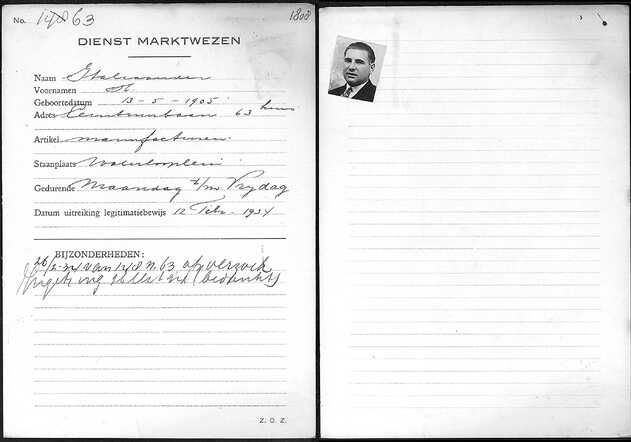 No. 148 63 1808
DIENST MARKTWEZEN
Naam Stalisander
Voornamen
Geboortedatum 13-5-1905
Adres Ceintuurbaan 63 huis
Artikel manufacturen
Staanplaats Waterlooplein
Gedurende Maandag t/m Vrydag
Datum uitreiking legitimatiebewijs 12 Febr. 1934
BIJZONDERHEDEN:
26/2-34 van 148 n. 63 op verzoek
(bedankt)
Z. O. Z.